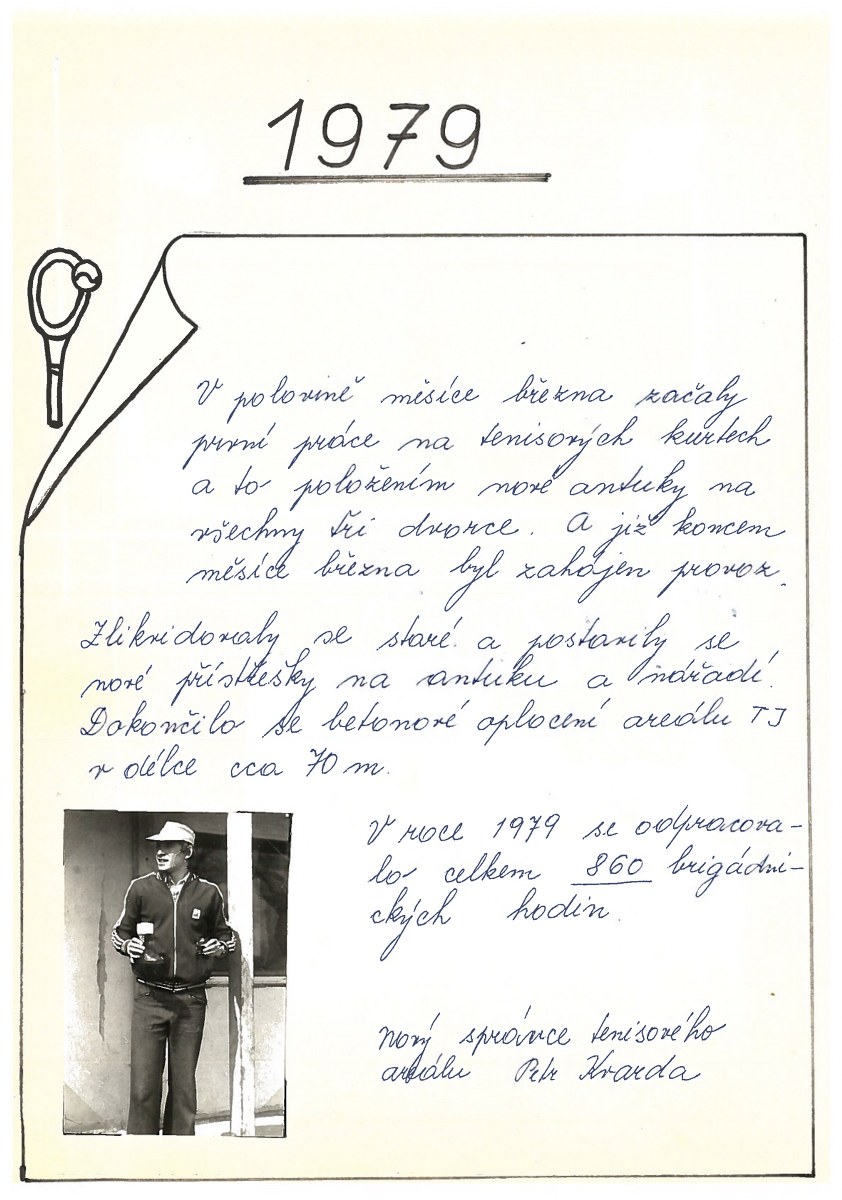 1979
V polovině měsíce března začaly
první práce na tenisových kurtech
a to položením nové antuky na
všechny tři dvorce. A již koncem
měsíce března byl zahájen provoz.
Zlikvidovaly se staré a postavily se
nové přístřešky na antuku a nářadí.
Dokončilo se betonové oplocení areálu TJ
v délce cca 70 m.
V roce 1979 se odpracova-
lo celkem 860 brigádni-
ckých hodin.
Nový správce tenisového
areálu Petr Kvarda